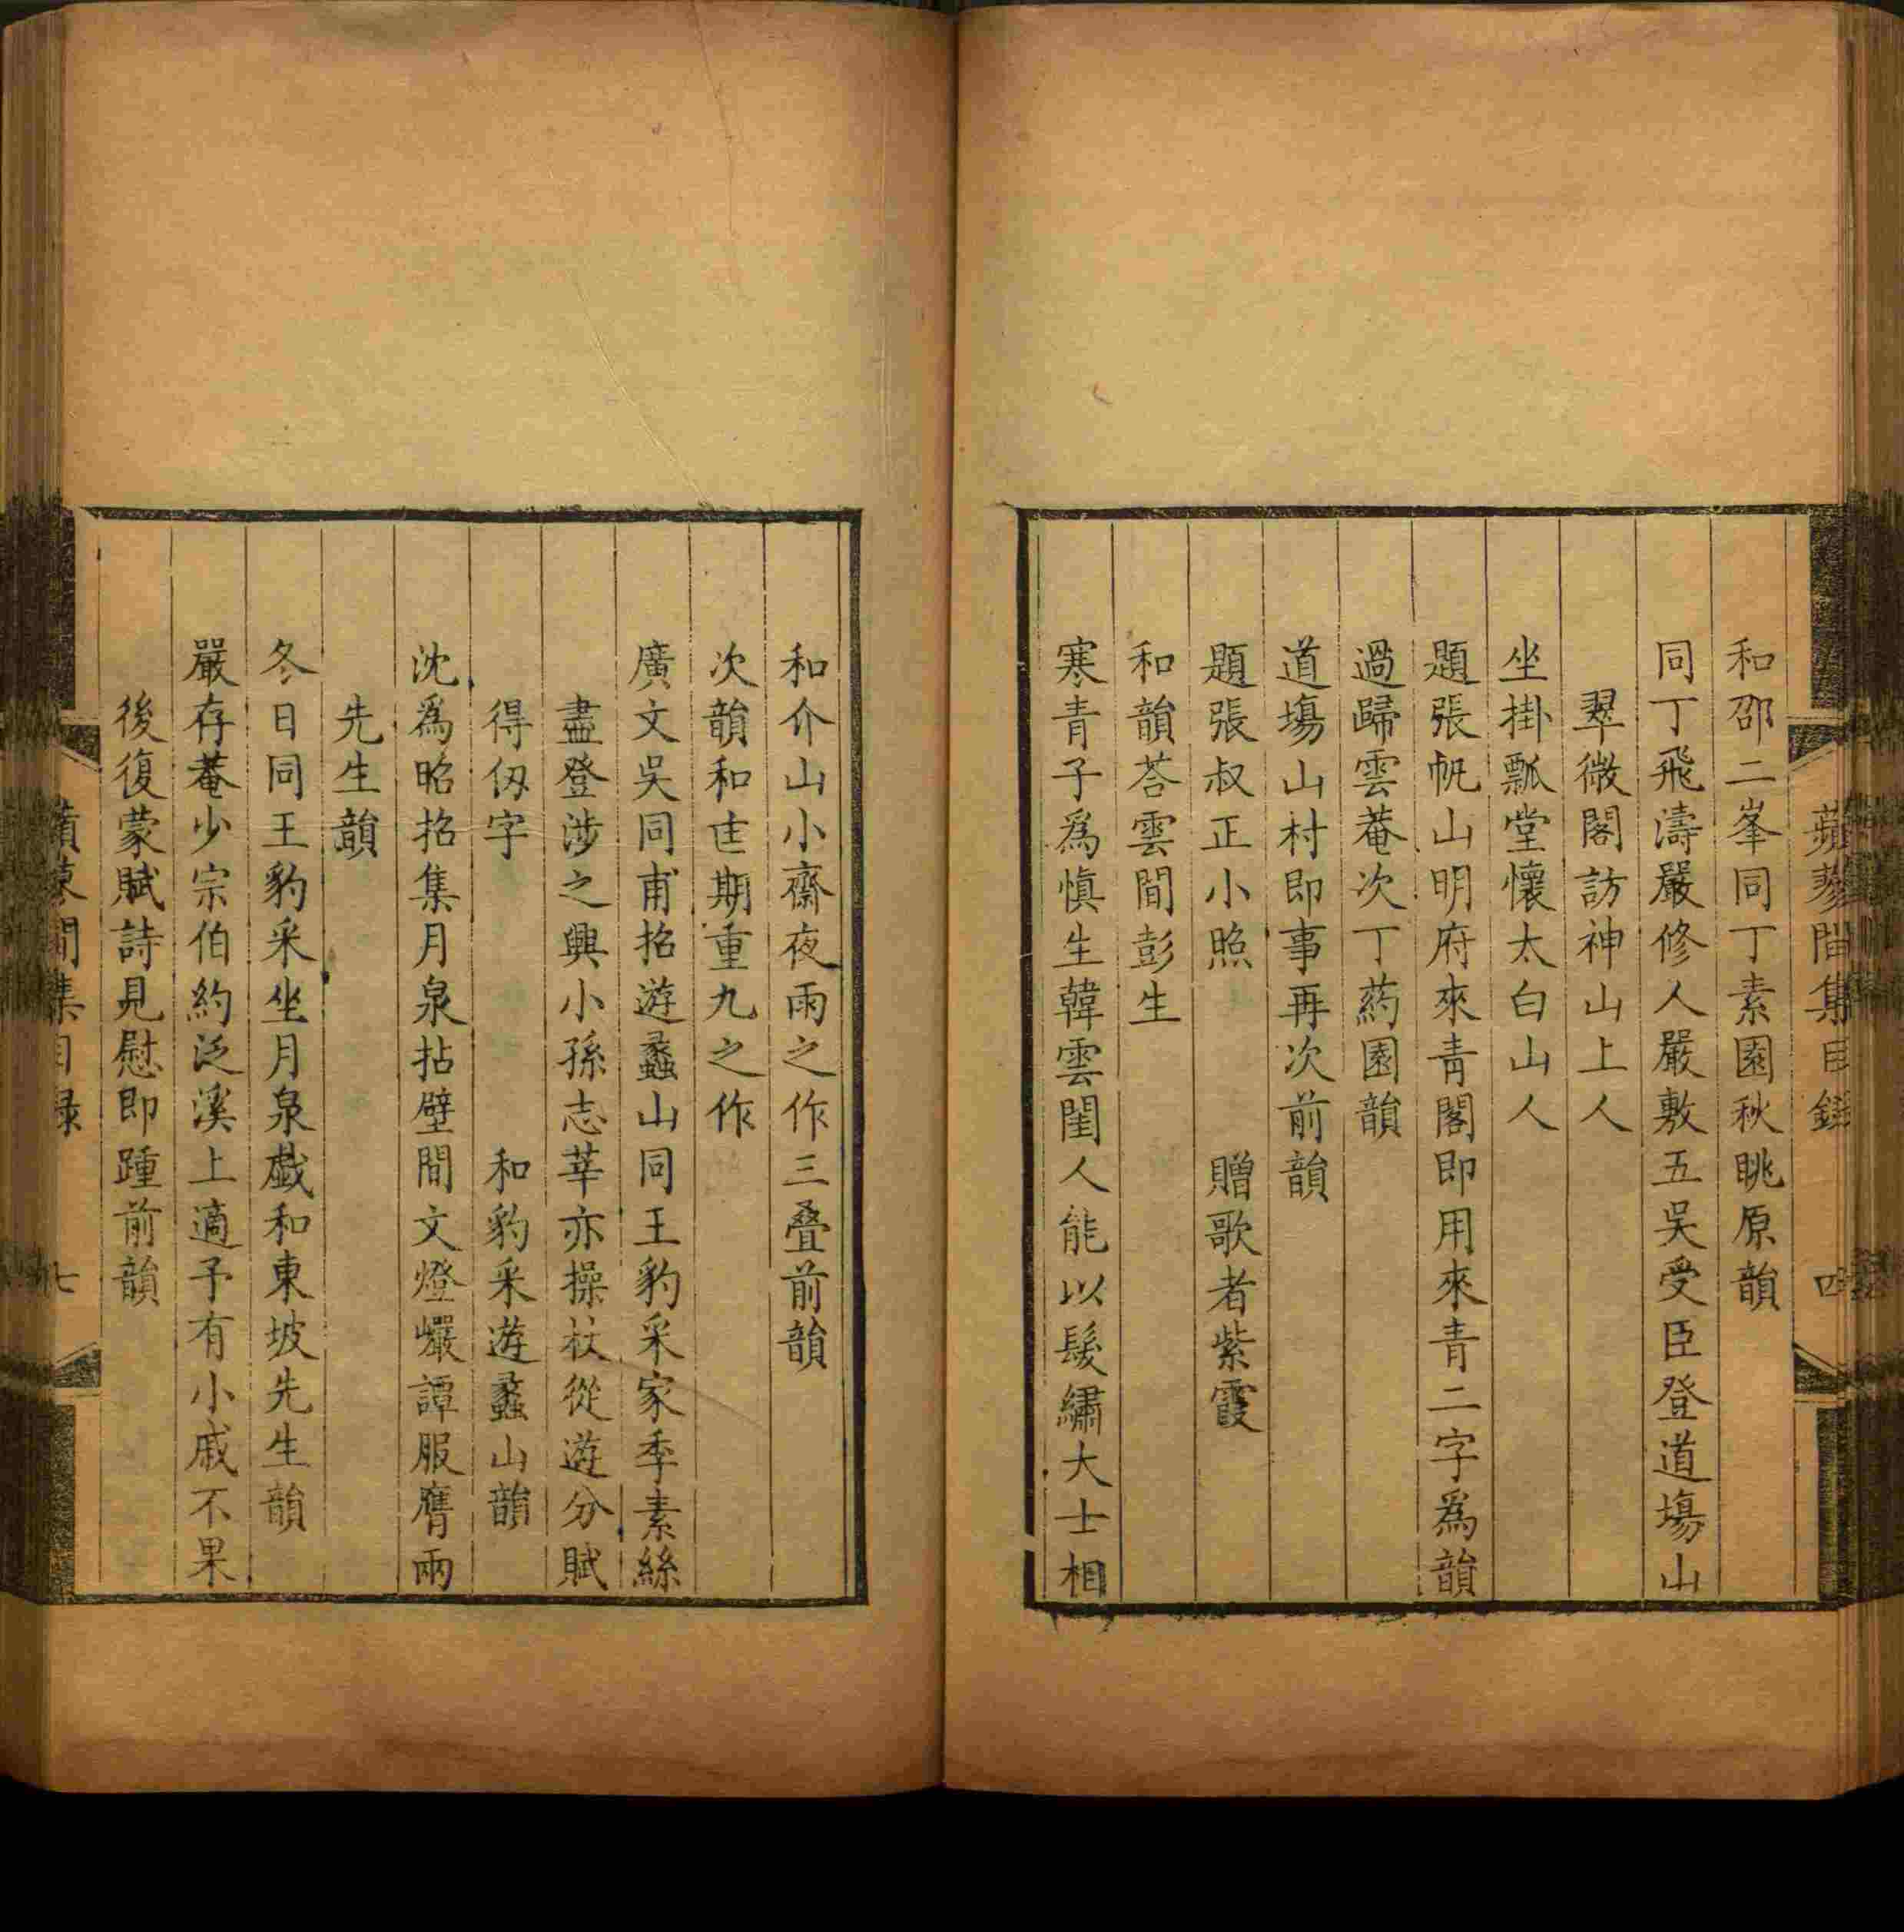 蘋蓼閒集目錄
四
和邵二峯同丁素園秋眺原韻
同丁飛濤嚴修人嚴敷五吳受臣登道塲山
翠微閣訪神山上人
坐掛瓢堂懷太白山人
題張帆山明府來青閣即用來青二字爲韻
過歸雲菴次丁葯園韻
道塲山村即事再次前韻
題張叔正小照 贈歌者紫霞
和韻荅雲閒彭生
寒青子爲愼生韓雲閨人能以髮繡大士相
和介山小齋夜雨之作三疊前韻
次韻和𠀍期重九之作
廣文吳同甫招遊蠡山同王豹采家季素絲
盡登涉之興小孫志莘亦操杖從遊分賦
得仭字 和豹采遊蠡山韻
沈爲昭招集月泉拈壁閒文燈巖譚服膺兩
先生韻
冬日同王豹采坐月泉戯和東坡先生韻
嚴存菴少宗伯約泛溪上適予有小戚不果
後復蒙賦詩見慰即踵前韻
閒集目錄
七